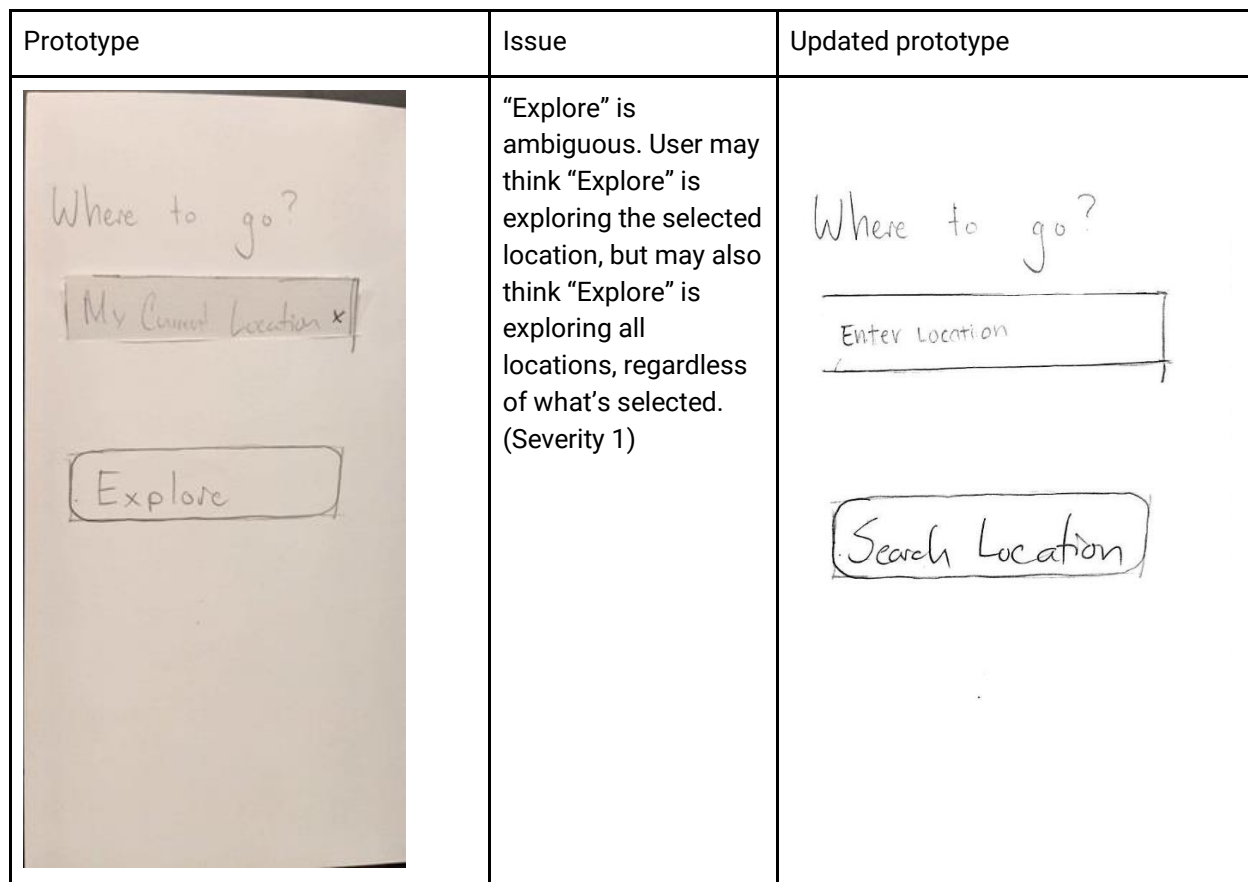 Prototype
Issue
Updated prototype
Where to go?
My Current Location x
Explore
“Explore” is
ambiguous. User may
think “Explore” is
exploring the selected
location, but may also
think “Explore” is
exploring all
locations, regardless
of what's selected.
(Severity 1)
Where to go?
Enter Location
Search Location